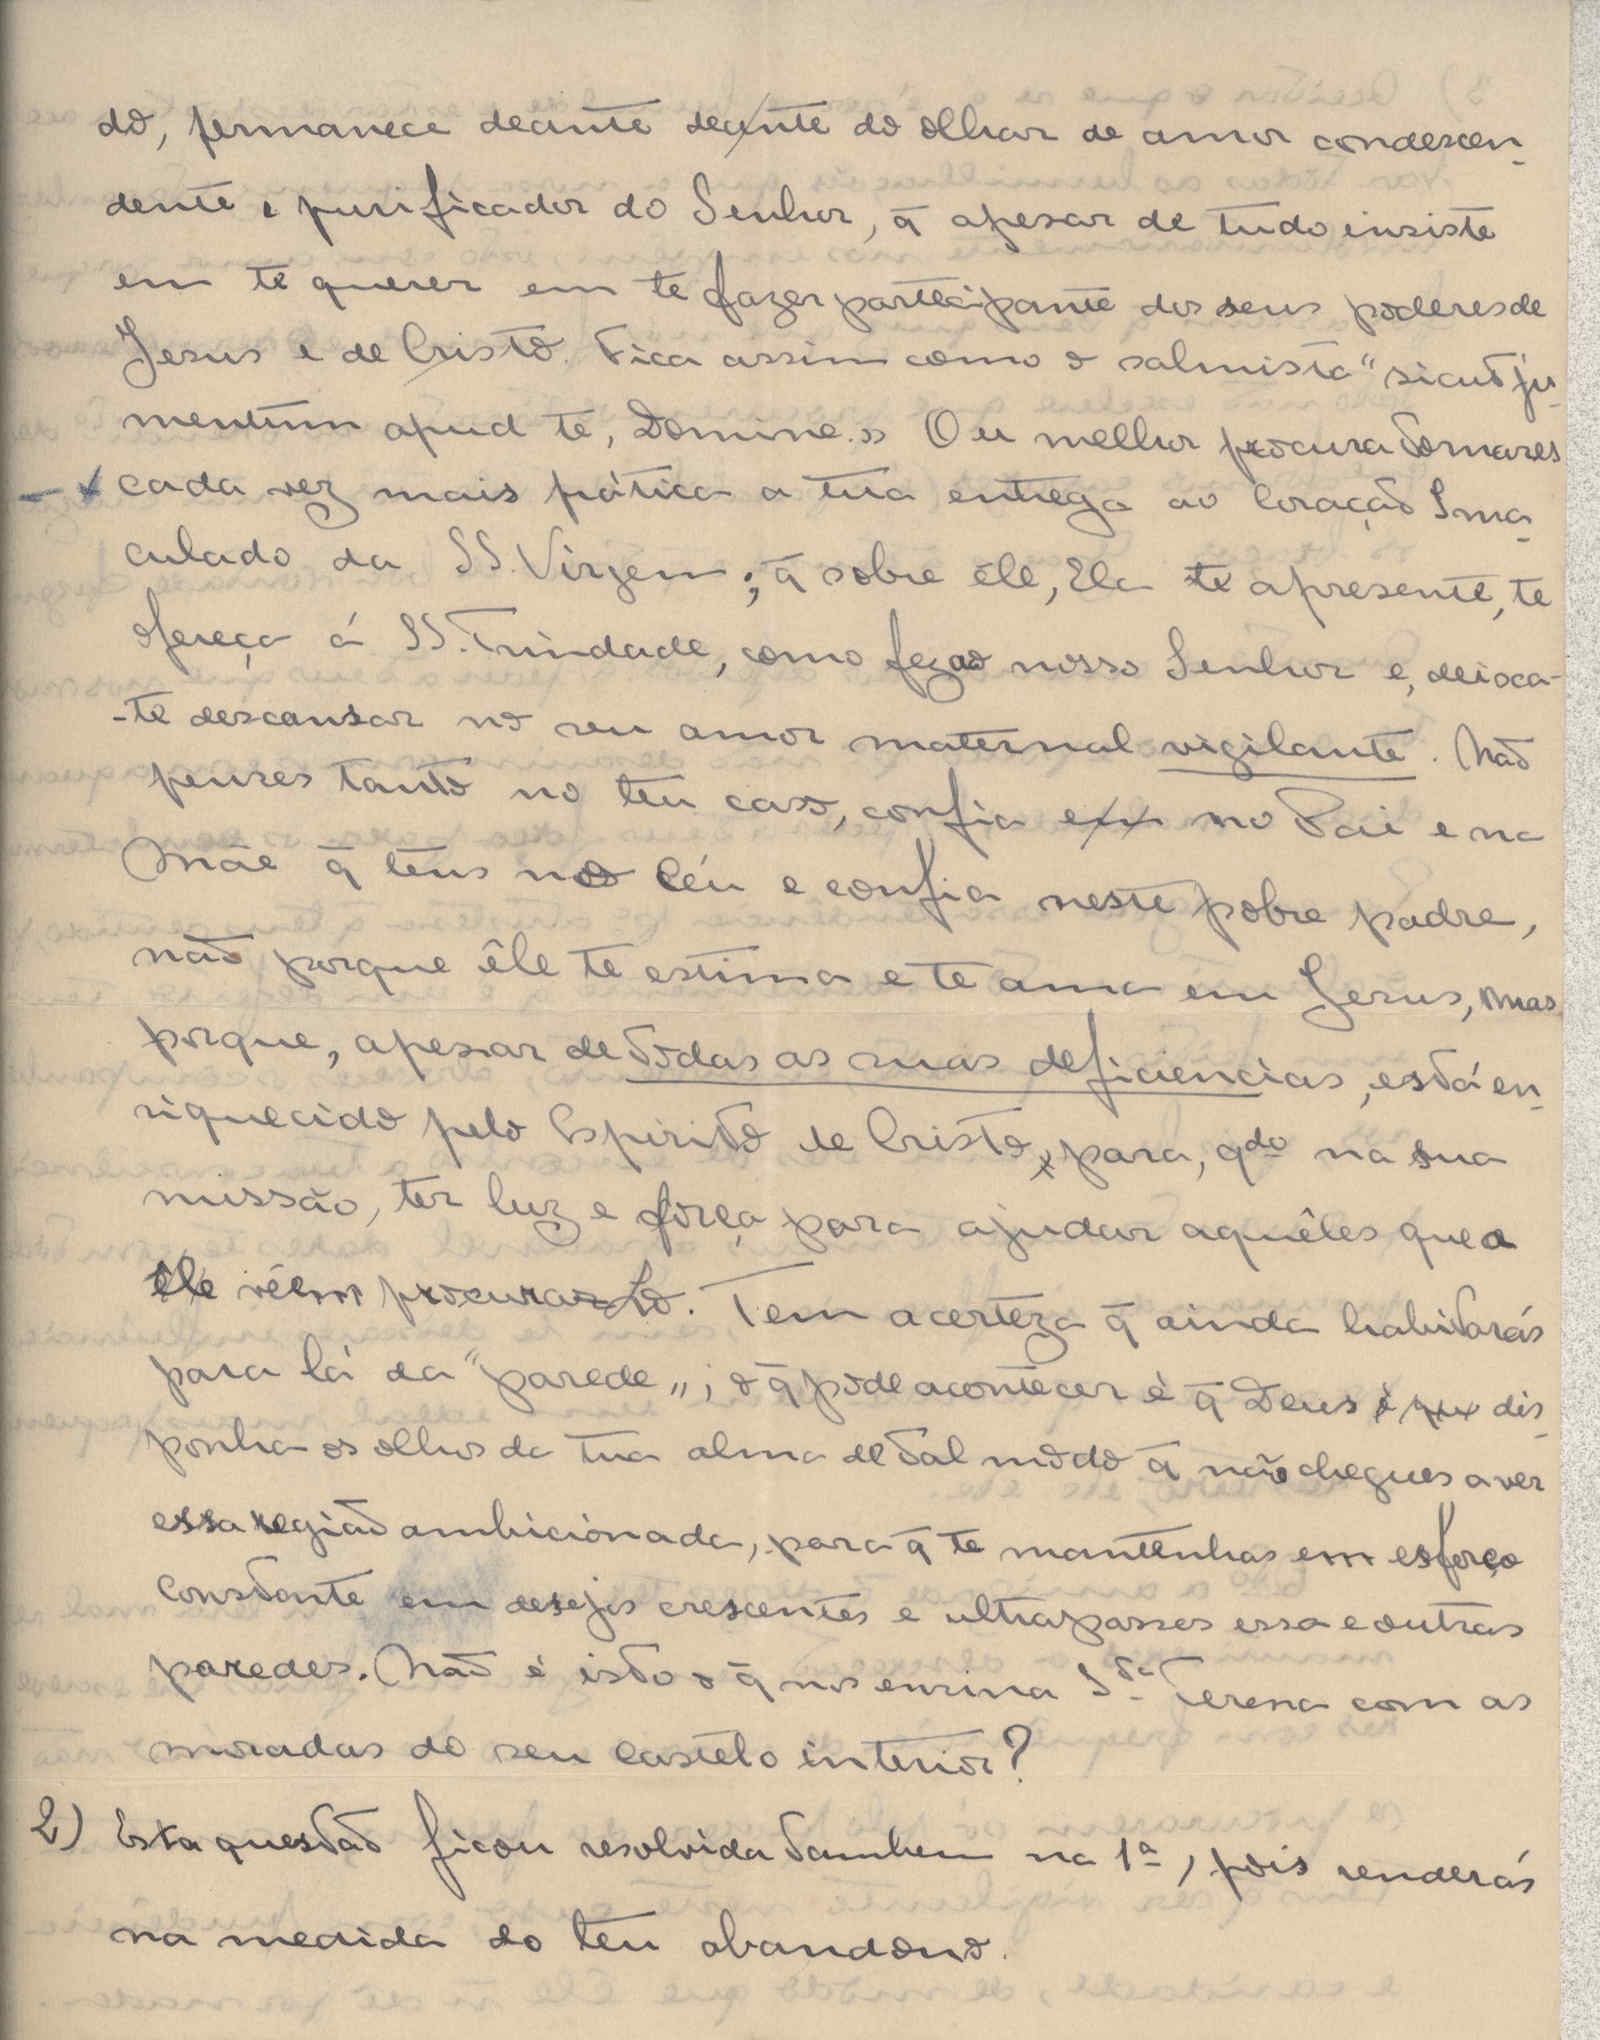 do, permanece deante deante do olhar de amor condescen-
dente e purificador do Senhor, q̄ apesar de tudo insiste
em te querer em te fazer participante dos seus poderes de
Jesus e de Cristo. Fica assim como o salmista "sicut ju-
mentum apud te, Domine.» Ou melhor procura tomares
cada vez mais prática a tua entrega ao Coração Ima-
culado da SS. Virgem; q̄ sobre êle, Ela te apresente, te
ofereça á SS. Trindade, como fez ao nosso Senhor e, deioca-
-te descansar no seu amor maternal vigilante. Não
penses tanto no teu caso, confia em no Pai e na
Mãe q̄ tens no Céu e confia neste pobre padre,
não porque êle te estima e te ama em Jesus, mas
porque, apesar de todas as suas deficiencias, está en-
riquecido pelo Espirito de Cristo, para, qdo na sua
missão, ter luz e força para ajudar aquêles que a
êle vêem procurar. Tem a certeza q̄ ainda habitarás
para lá da "parede"; o q̄ pode acontecer é q̄ Deus é que dis-
ponha os olhos da tua alma de tal modo q̄ não chegues a ver
essa região ambicionada, para q̄ te mantenhas em esforço
constante em desejos crescentes e ultrapasses essa e outras
paredes. Não é isto o q̄ nos ensina Sta Teresa com as
moradas do seu castelo interior?
2) Esta questão ficou resolvida tambem na 1ª, pois renderás
na medida do teu abandono.